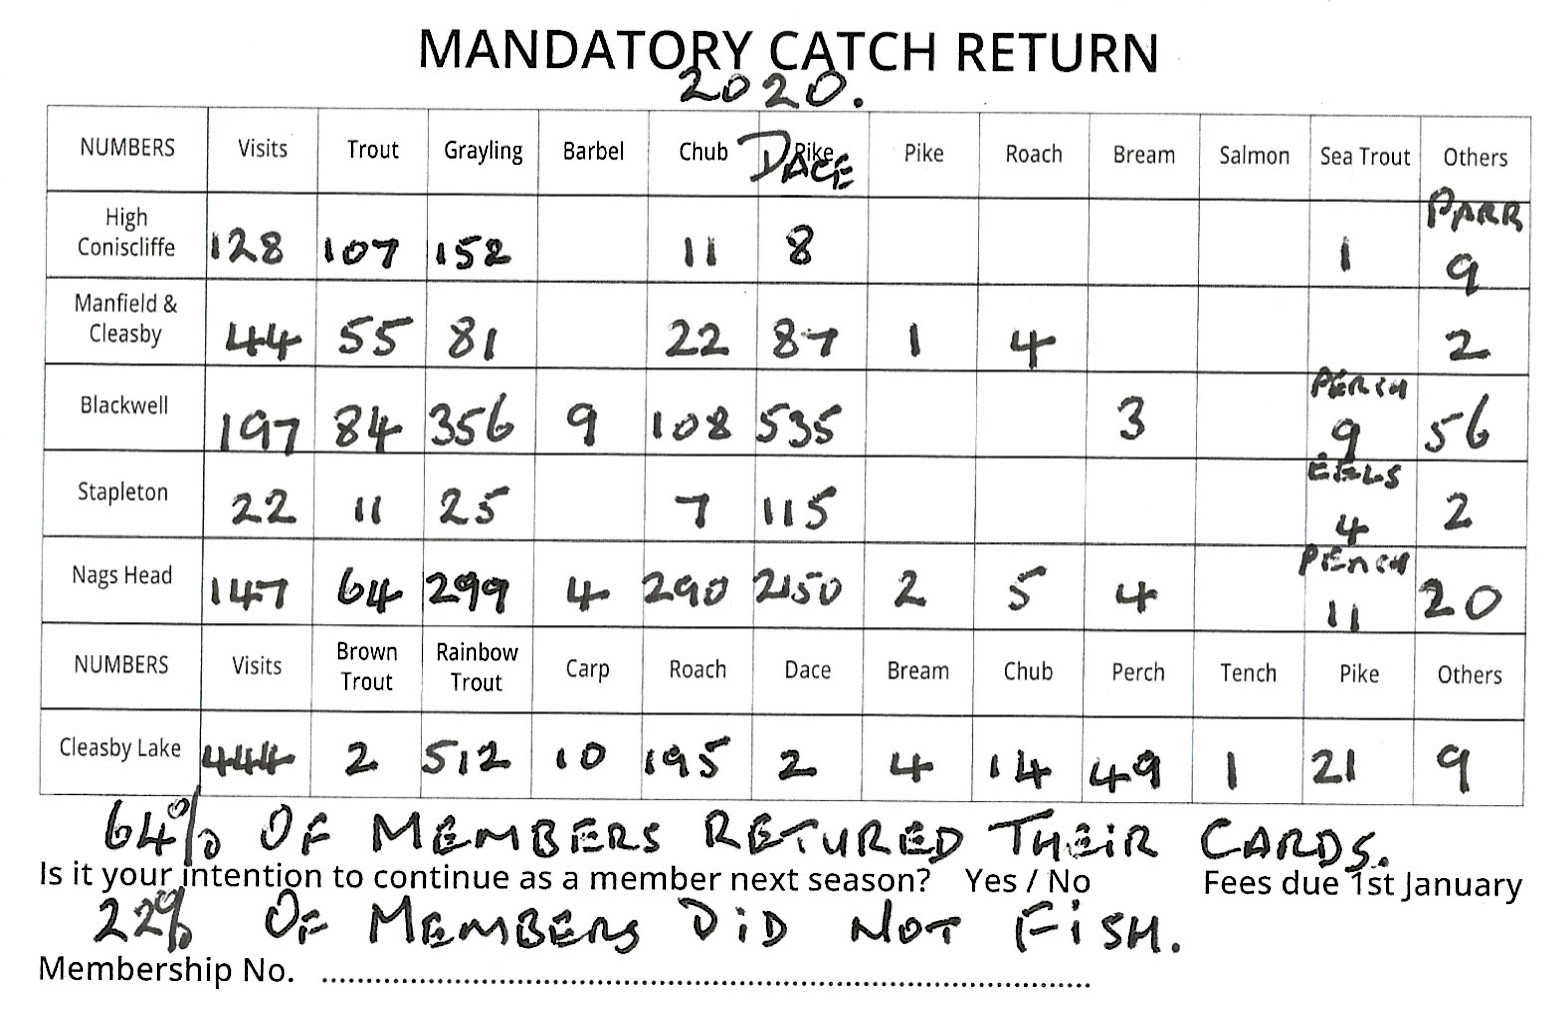 MANDATORY CATCH RETURN
2020.
NUMBERS Visits Trout Grayling Barbel Chub Pike DACE Pike Roach Bream Salmon Sea Trout Others
High Coniscliffe 128 107 152 11 8 1 PARR 9
Manfield & Cleasby 44 55 81 22 87 1 4 2
Blackwell 197 84 356 9 108 535 3 PERCH 9 56
Stapleton 22 11 25 7 115 EELS 4 2
Nags Head 147 64 299 4 290 2150 2 5 4 PERCH 11 20
NUMBERS Visits Brown Trout Rainbow Trout Carp Roach Dace Bream Chub Perch Tench Pike Others
Cleasby Lake 444 2 512 10 195 2 4 14 49 1 21 9
64% OF MEMBERS RETURED THEIR CARDS.
Is it your intention to continue as a member next season? Yes / No Fees due 1st January
22% OF MEMBERS DID NOT FISH.
Membership No. ................................................................